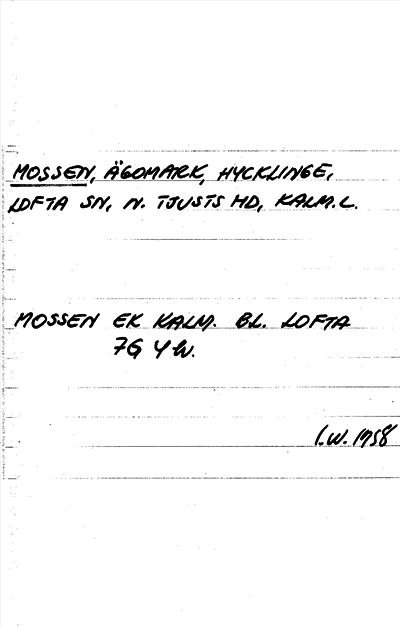 MOSSEN, ÄGOMARK, HYCKLINGE,
LOFTA SN, N. TJUSTS HD, KALM. L.
MOSSEN EK KALM. BL. LOFTA
7G 4 W.
I.W. 1958